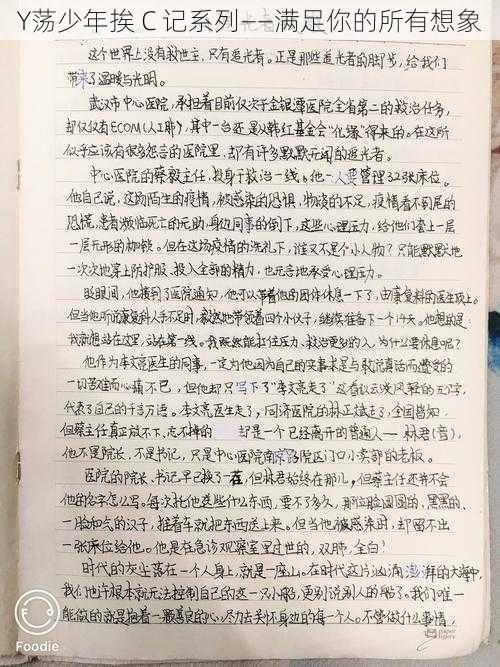 Y荡少年挨 C 记系列——满足你的所有想象
这个世界上没有救世主,只有追光者。正是那些追光者的脚步,给我们
带来了温暖与光明。
武汉市中心医院,承担着目前仅次于金银潭医院全省第二的救治任务,
却仅仅有ECOM(人工肺),其中一台还是从韩红基金会“化缘”得来的。在这所
似乎应该有很多怨言的医院里,却有许多默默无闻的追光者。
中心医院的蔡毅主任,投身于救治一线。他一人要管理32张床位。
他自己说,这场陌生的疫情,被感染的恐惧,物资的不足,疫情看不到尾的
恐慌,患者濒临死亡的无助,身边同事的倒下,这些心理压力,给他们套上一层
一层无形的枷锁。但在这场疫情的洗礼下,谁又不是个小人物?只能默默地
一次次地穿上防护服、投入全部的精力,也无言地承受心理压力。
期间,他接到了医院通知,他可以带着他的团体休息一下了,由康复科的医生顶上。
但当他听说康复科人手不足时,毅然地带领着四个小伙子,继续准备下一个14天。他想的是:
我就想站在这里,站在第一线。我既然能扛住压力、救治更多的人,为什么要休息呢?
他作为李文亮医生的同事,一定为他因为自己的实事求是与敢说真话而遭受的
一切苦难而心痛不已,但他却只写下了“李文亮走了”这看似云淡风轻的五个字,
代表了自己的千言万语。李文亮医生走了,同济医院的林正斌走了,全国皆知,
但蔡主任真正放不下、忘不掉的 却是一个已经离开的普通人——林君(音),
他不是院长,不是书记,只是中心医院南京路院区门口小卖部的老板。
医院的院长、书记,早已换了一茬,但林君始终在那儿。但蔡主任还并不会
他的名字怎么写。每次托他送些什么东西,要不了多久,那位脸圆圆的,黑黑的、
一脸和气的汉子,推着车就把东西送上来。但当他被感染时,却留不出
一张床位给他。他是在急诊观察室里过世的,双肺,全白!
时代的灰尘落在一个人身上,就是一座山。在时代这片汹涌澎湃的大海中,
我们也许根本就无法控制自己的这一只小船,更别说别人的船了。我们唯一
能做的就是抱着一颗善良的心,尽力去关怀身边的每一个人。不管做什么事情,
Foodie
paper
tigers